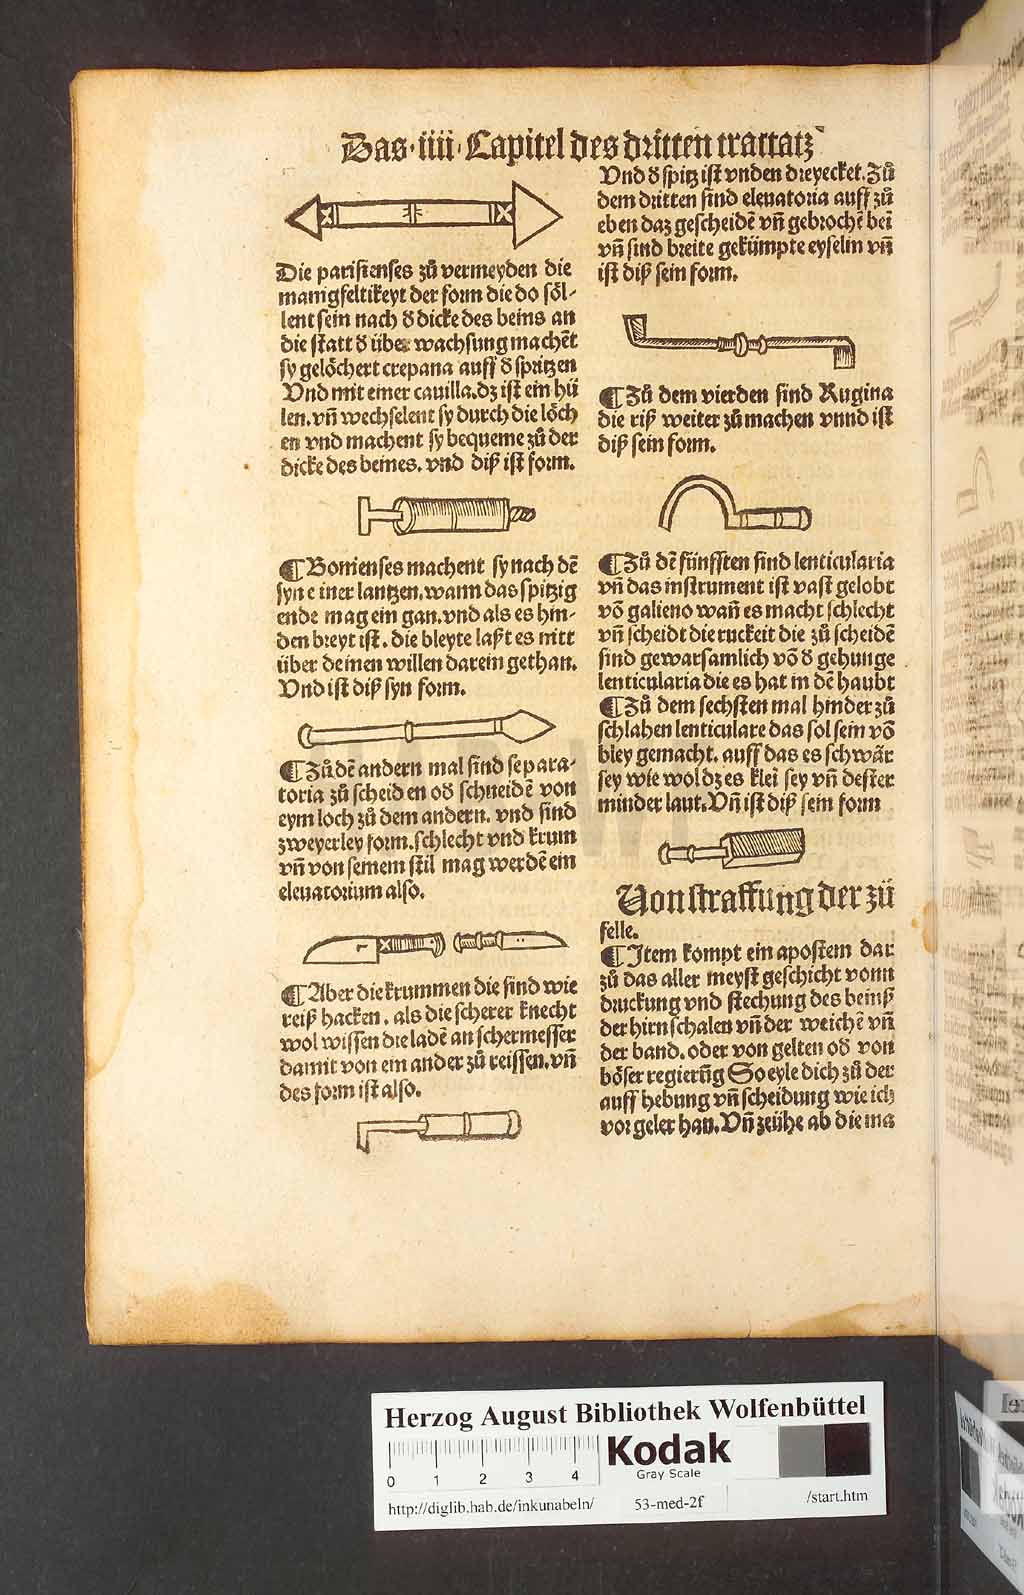 Das·iiii·Capitel des dritten tractatz
Die parisienses zů vermeyden die
manigfeltikeyt der form die do söl-
lent sein nach d̕ dicke des beins an
die statt d̕ über wachsung machēt
sy gelöchert crepana auff d̕ spitzen
Vnd mit einer cauilla.dz ist ein hü
len.vñ wechselent sy durch die löch
en vnd machent sy bequeme zů der
dicke des beines.vnd diß ist form.
¶Bonienses machent sy nach dē
syn einer lantzen,wann das spitzig
ende mag ein gan.vnd als es hin-
den breyt ist.die bleyte laßt es nitt
über deinen willen darein gethan.
Vnd ist diß syn form.
¶Zů dē andern mal sind separa-
toria zů scheiden od̕ schneidē von
eym loch zů dem andern.vnd sind
zweyerley form.schlecht vnd krum
vñ von seinem stil mag werdē ein
eleuatorium also.
¶Aber die krummen die sind wie
reiß hacken.als die scherer knecht
wol wissen die ladē an schermesser
damit von ein ander zů reissen.vñ
des form ist also.
Vnd d̕ spitz ist vnden dreyecket.Zů
dem dritten sind eleuatoria auff zů
eben daz gescheidē vñ gebrochē bei
vñ sind breite gekümpte eyselin vñ
ist diß sein form.
¶Zů dem vierden sind Rugina
die riß weiter zů machen vnnd ist
diß sein form.
¶Zů dē fünfften sind lenticularia
vñ das instrument ist vast gelobt
vō galieno wañ es macht schlecht
vñ scheidt die ruckeit die zů scheidē
sind gewarsamlich vō d̕ gehunge
lenticularia die es hat in dē haubt
¶Zů dem sechsten mal hinder zů
schlahen lenticulare das sol sein vō
bley gemacht.auff das es schwär
sey wie wol dz es klei sey vñ dester
minder laut.Vñ ist diß sein form
Von straffung der zů
felle.
¶Item kompt ein apostem dar
zů das aller meyst geschicht vonn
druckung vnd stechung des beinß
der hirnschalen vñ der weichē vñ
der band.oder von gelten od̕ von
böser regierūg So eyle dich zů der
auff hebung vñ scheidung wie ich
vor geler han.Vñ zeühe ab die ma
Herzog August Bibliothek Wolfenbüttel
0 1 2 3 4
Kodak
Gray Scale
http://diglib.hab.de/inkunabeln/ 53-med-2f /start.htm